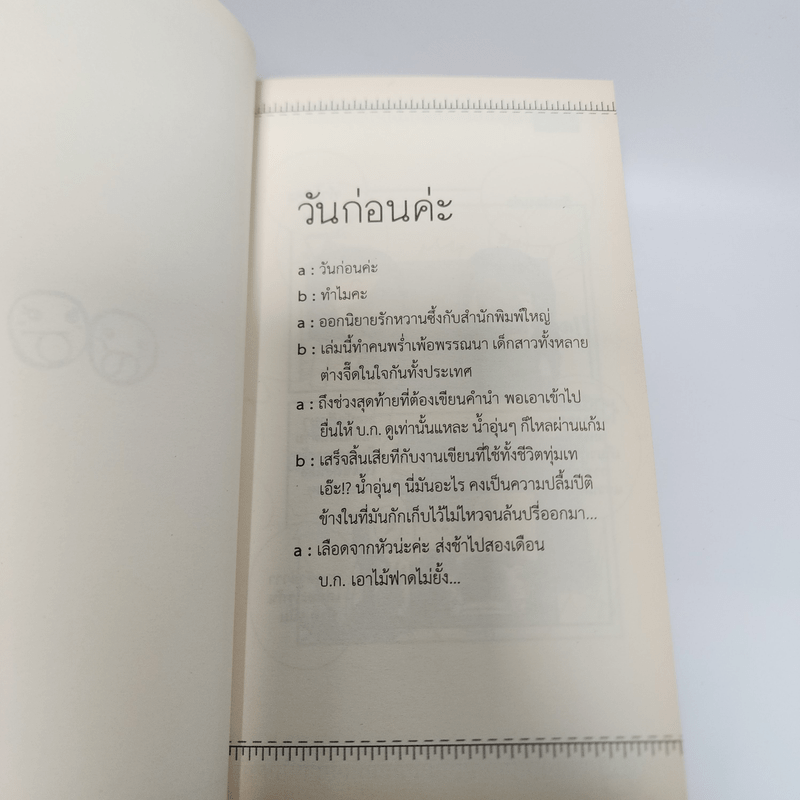 วันก่อนค่ะ
a : วันก่อนค่ะ
b : ทำไมคะ
a : ออกนิยายรักหวานซึ้งกับสำนักพิมพ์ใหญ่
b : เล่มนี้ทำคนพร่ำเพ้อพรรณนา เด็กสาวทั้งหลาย
ต่างจี๊ดในใจกันทั้งประเทศ
a : ถึงช่วงสุดท้ายที่ต้องเขียนคำนำ พอเอาเข้าไป
ยื่นให้ บ.ก. ดูเท่านั้นแหละ น้ำอุ่นๆ ก็ไหลผ่านแก้ม
b : เสร็จสิ้นเสียทีกับงานเขียนที่ใช้ทั้งชีวิตทุ่มเท
เอ๊ะ!? น้ำอุ่นๆ นี่มันอะไร คงเป็นความปลื้มปีติ
ข้างในที่มันกักเก็บไว้ไม่ไหวจนล้นปรี่ออกมา...
a : เลือดจากหัวน่ะค่ะ ส่งช้าไปสองเดือน
บ.ก. เอาไม้ฟาดไม่ยั้ง...